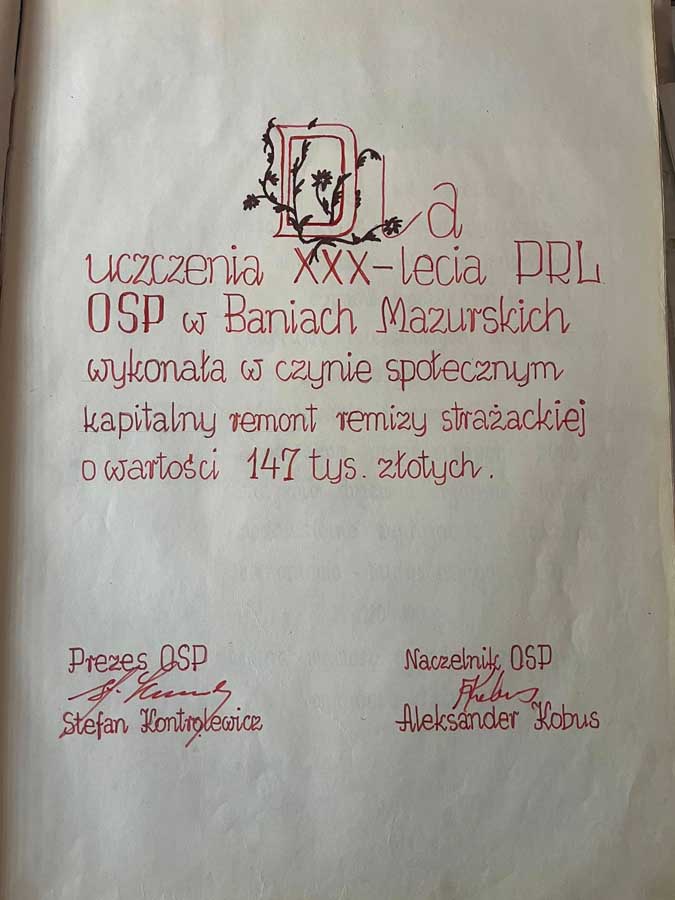 Dla
uczczenia XXX-lecia PRL
OSP w Baniach Mazurskich
wykonała w czynie społecznym
kapitalny remont remizy strażackiej
o wartości 147 tys. złotych.
Prezes OSP Naczelnik OSP
Stefan Kontrolewicz Aleksander Kobus